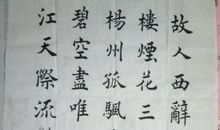 故人西辭
樓煙花三
楊州孤颿
碧空盡唯
江天際流